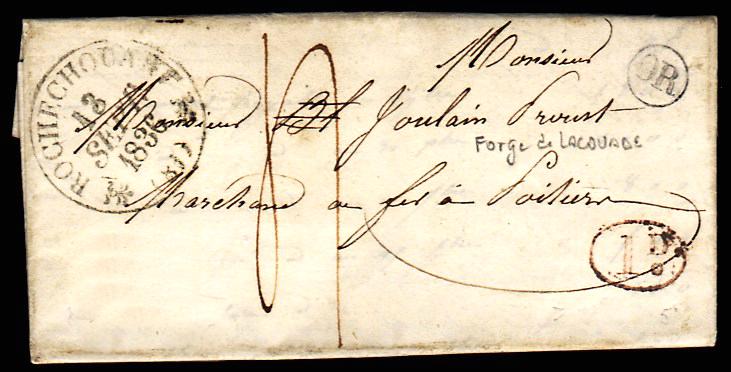 ROCHECHOUART (81)
13
SEPT
1836
OR
Monsieur
Monsieur Joulain Proust
Forge de LACOUADE
Marchand de fer à Poitiers
1 D.